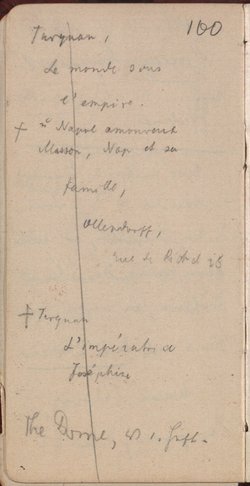 Turquan, 100
Le monde sous
l'empire.
† Napol amoureux
Masson, Nap et sa
famille,
Ollendorff,
rue de
† Turquan
L'impératrice
Joséphine
The Dome, W 1.